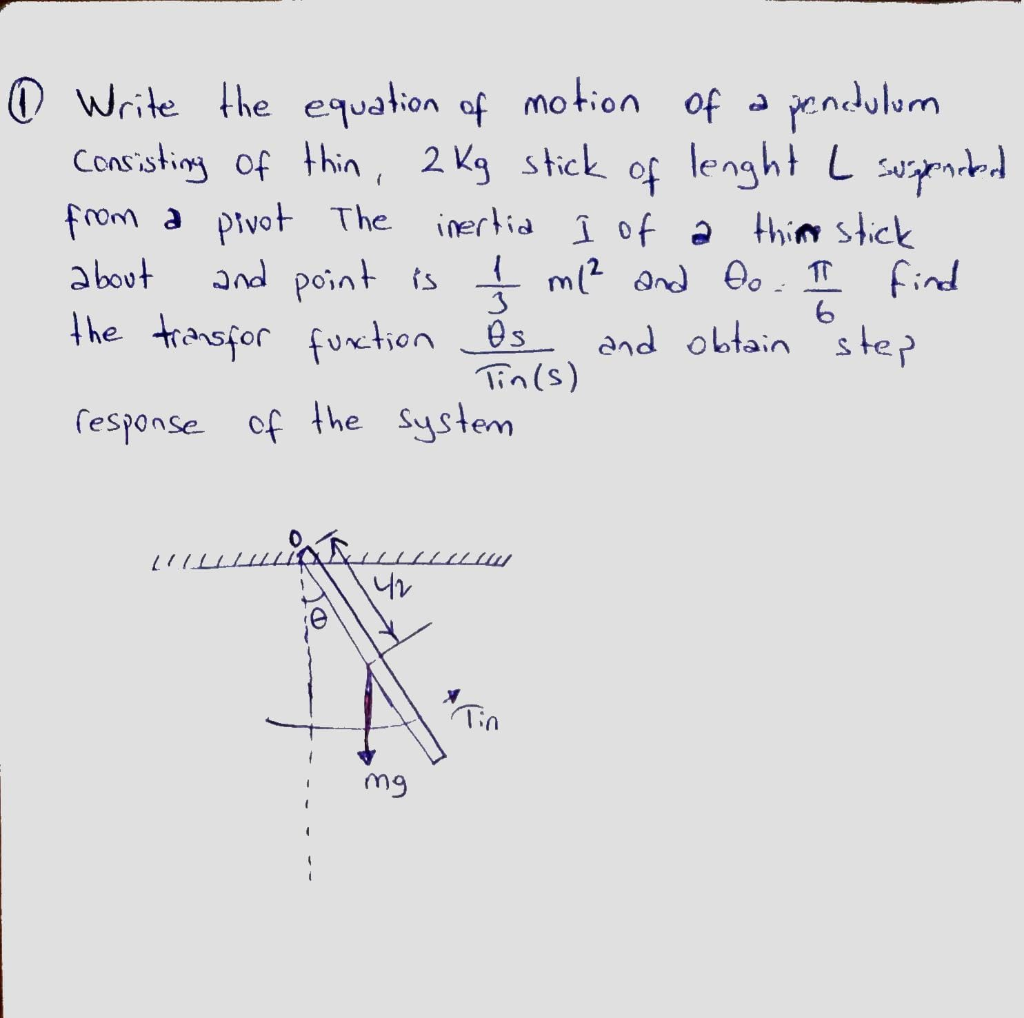 ① Write the equation of motion of a pendulum
Consisting of thin, 2 Kg stick of lenght L suspended
from a pivot The inertia I of a thin stick
about and point is 1/3 ml² and θo = π/6 find
the transfor function θs/Tin(s) and obtain step
response of the system
O
L/2
θ
Tin
mg